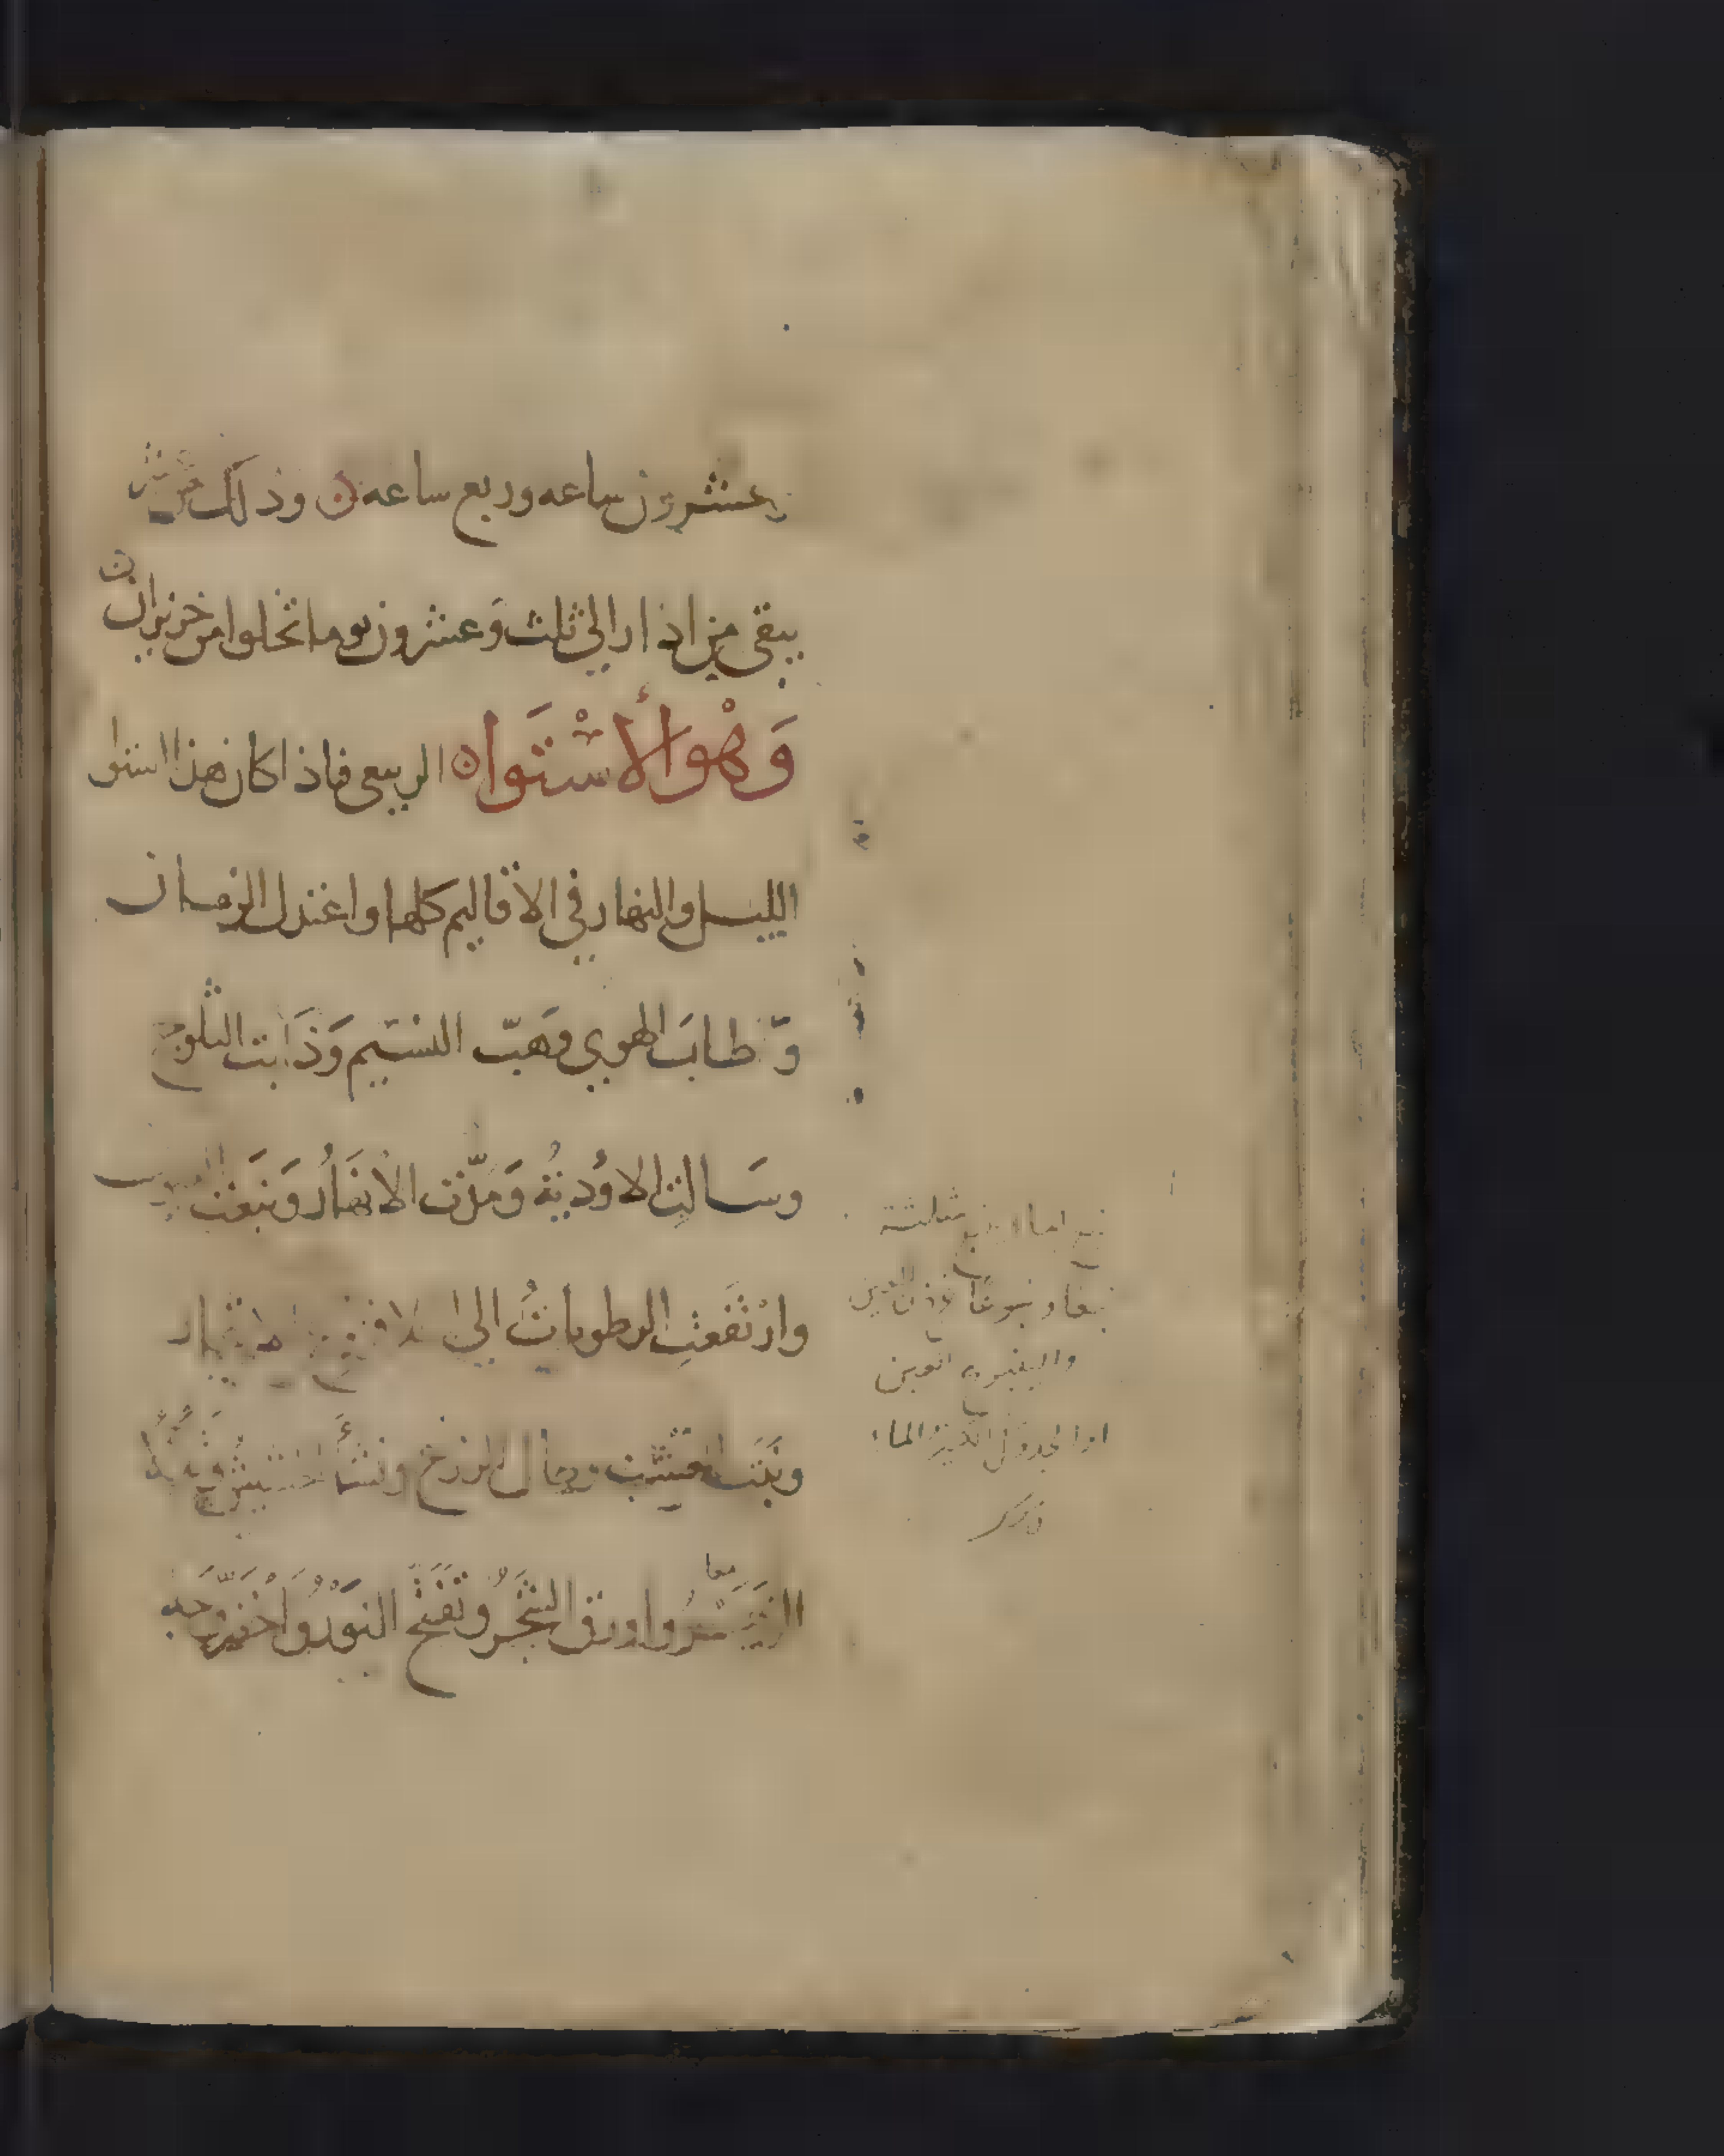 وعشرون ساعه وربع ساعه ن وذلك من
يبقى من اذار الي ثلث وعشرون يوما تخلوا من حزيران
وَهْوَ الأسْتَواه الربيعي فاذا كان هذا استوا
الليل والنهار في الاقاليم كلها واعتدل الزمان
وَطابَ الهوي وَهَبّ النسَيم وَذَابت الثلوج
وسَالتِ الاوُديةُ وَمدّت الأنهَارُ وَنبَعَت
وارْتفَعتِ الرطوباتُ الي اطار
ونبَتَ العشب وطال الزرع ونشَأ الحشيش
معا
واورق الشجَرُ وتَفَتّحَ النَوْرُ وَاخْضَرّ
نبع الماء ينبع مثلثة
نبعا ونبوعًا
والينبوع العين
او الجدول الكثير الماء